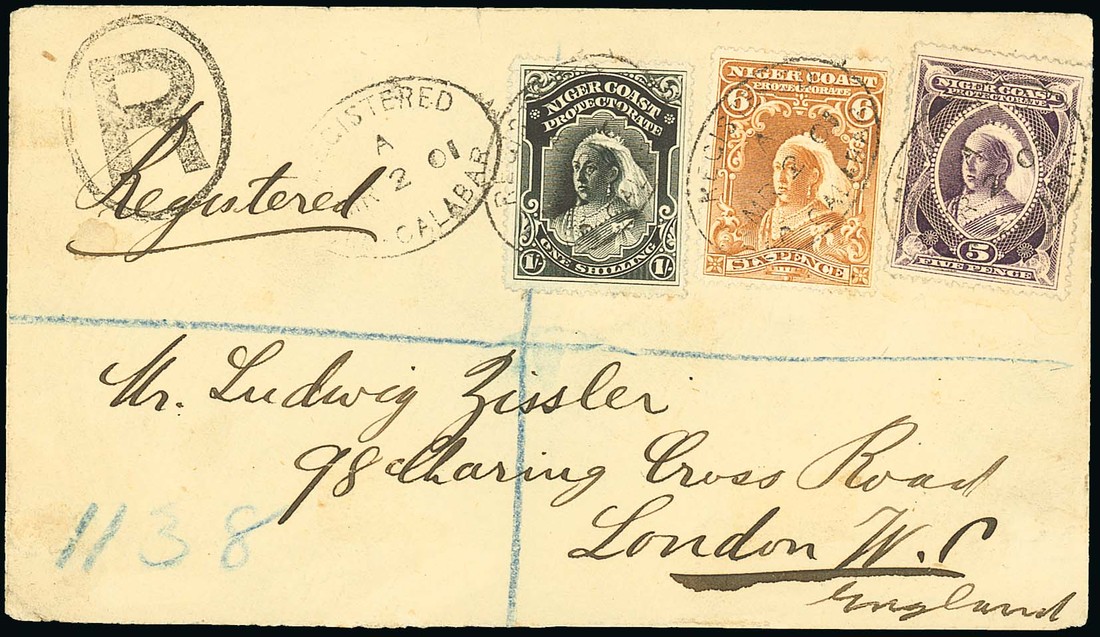 R
Registered
REGISTERED
A
2 01
CALABAR
NIGER COAST
PROTECTORATE
1/- ONE SHILLING 1/-
NIGER COAST
PROTECTORATE
6 6
SIX-PENCE
NIGER COAST
PROTECTORATE
5
FIVE PENCE
Mr. Ludwig Zissler
98 Charing Cross Road
London W.C
England
1138